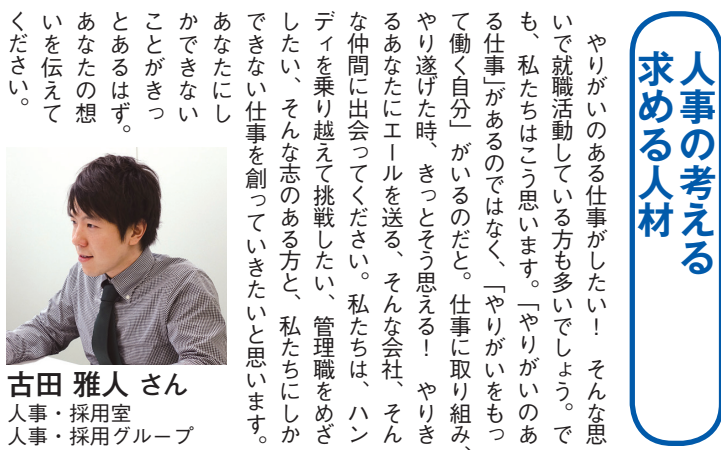 人事の考える
求める人材
　やりがいのある仕事がしたい！　そんな思
いで就職活動している方も多いでしょう。で
も、私たちはこう思います。「やりがいのあ
る仕事」があるのではなく、「やりがいをもっ
て働く自分」がいるのだと。仕事に取り組み、
やり遂げた時、きっとそう思える！　やりき
るあなたにエールを送る、そんな会社、そん
な仲間に出会ってください。私たちは、ハン
ディを乗り越えて挑戦したい、管理職をめざ
したい、そんな志のある方と、私たちにしか
できない仕事を創っていきたいと思います。
あなたにし
かできない
ことがきっ
とあるはず。
あなたの想
いを伝えて
ください。
古田 雅人 さん
人事・採用室
人事・採用グループ